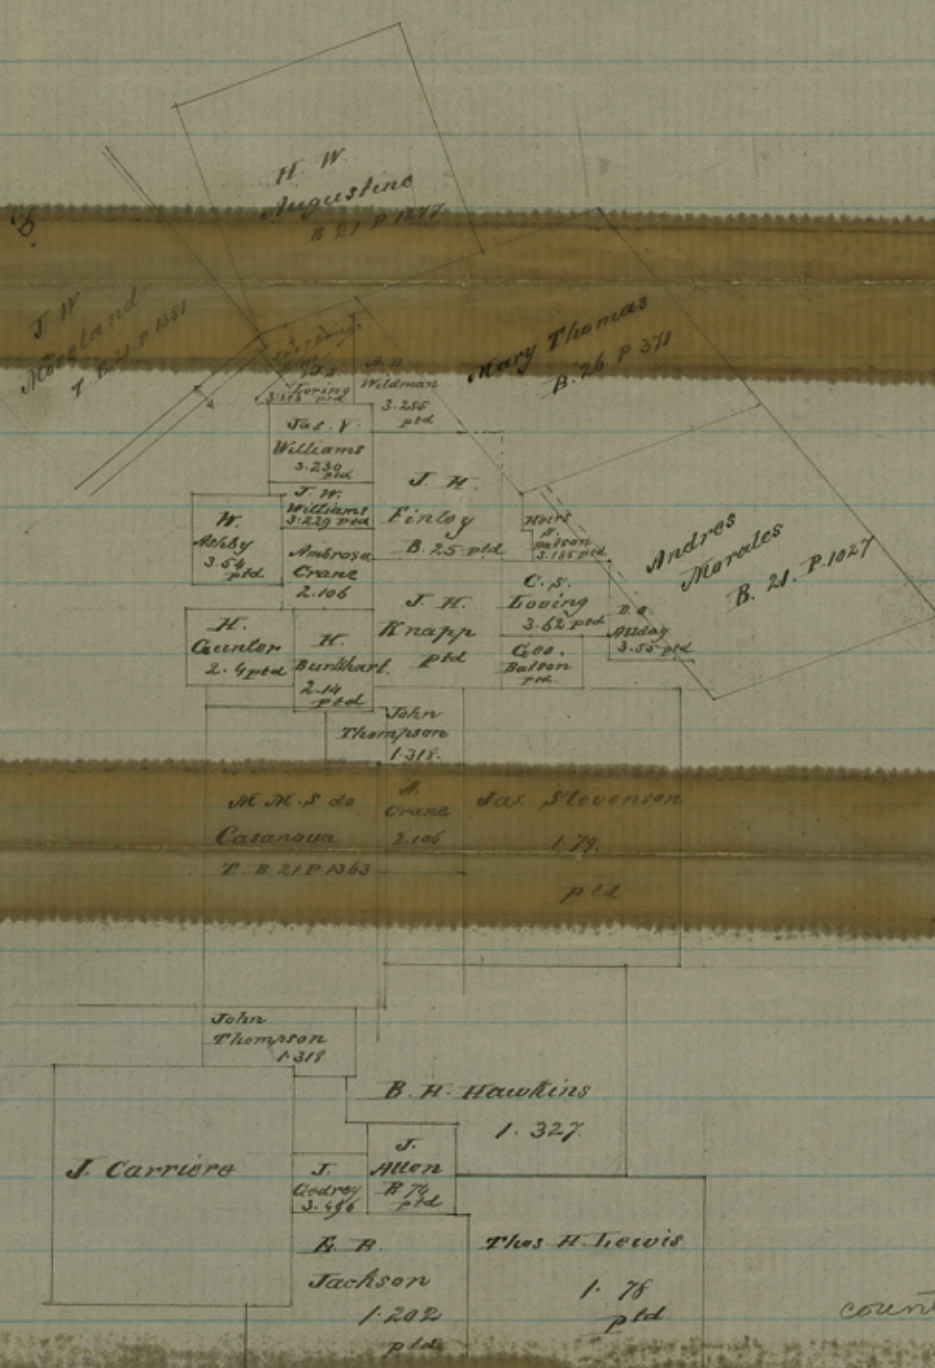 H. W.
Augustine
B 21 P 1277
J. W
Moreland
T. B. 21 P 1351
Mary Thomas
B. 26 P 371
Loring
ptd
Wildman
3.255
ptd
Jas. V.
Williams
3.230
ptd
J. W.
Williams
3.229 ptd
J. H.
Finley
B. 25 ptd
W.
Ashby
3.54
ptd
Ambrose
Crane
2.106
Heirs
3.155 ptd
Andres
Morales
B. 21. P. 1027
C. S.
Loving
3.62 ptd
J. H.
Knapp
ptd
Allday
3.55 ptd
H.
Gunter
2.4 ptd
H.
Burkhart.
2.14
ptd
Geo.
Batson
ptd.
John
Thompson
1.318.
M M. S de
Casanova
T. B. 21 P 1363
A.
Crane
2.106
Jas Stevenson
1.79.
ptd
John
Thompson
1.318
B. H. Hawkins
1. 327.
J. Carriere
J.
3.496
J.
Allen
B 74
ptd
E B.
Jackson
1.202
ptd
Thos H. Lewis
1. 78
ptd
coun